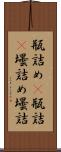 瓶詰め瓶詰
壜詰め壜詰